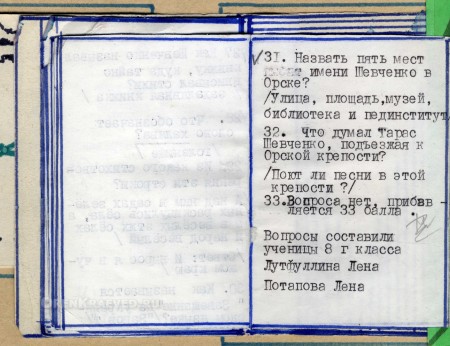 31. Назвать пять мест
имени Шевченко в
Орске?
/Улица, площадь,музей,
библиотека и пединститут/
32. Что думал Тарас
Шевченко, подъезжая к
Орской крепости?
/Поют ли песни в этой
крепости ?/
33.Вопроса нет, прибав -
ляется 33 балла .
Вопросы составили
ученицы 8 г класса
Лутфуллина Лена
Потапова Лена